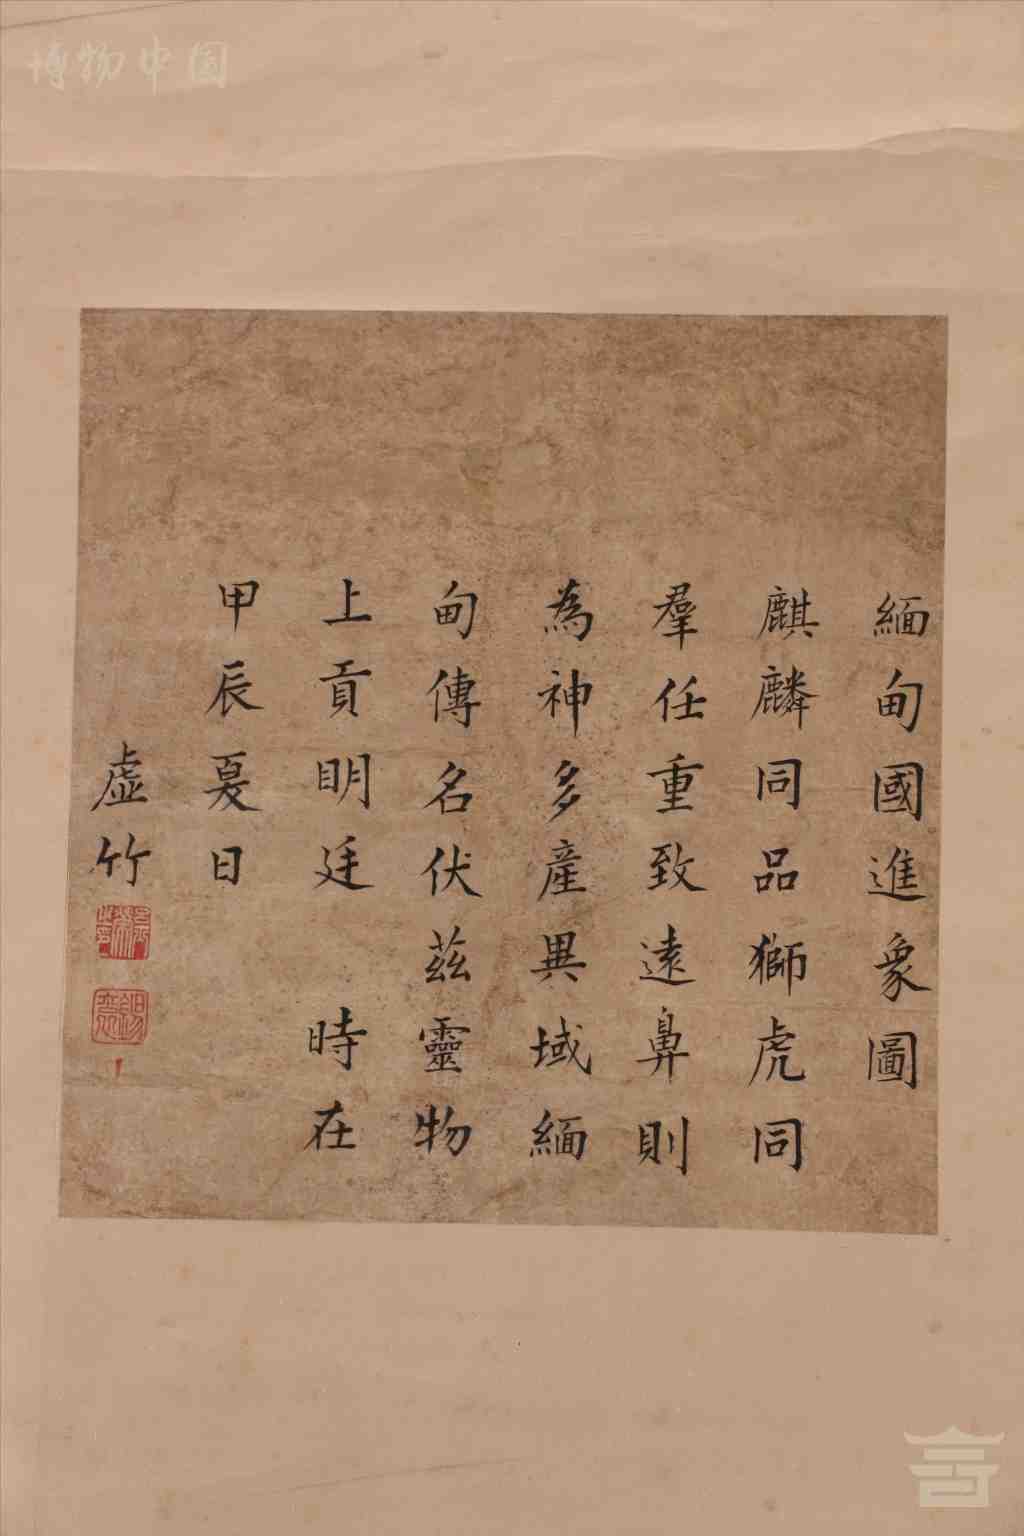 緬甸國進象圖
麒麟同品獅虎同
羣任重致遠鼻則
為神多產異域緬
甸傳名伏茲靈物
上貢明廷 時在
甲辰夏日
虛竹
博物中國